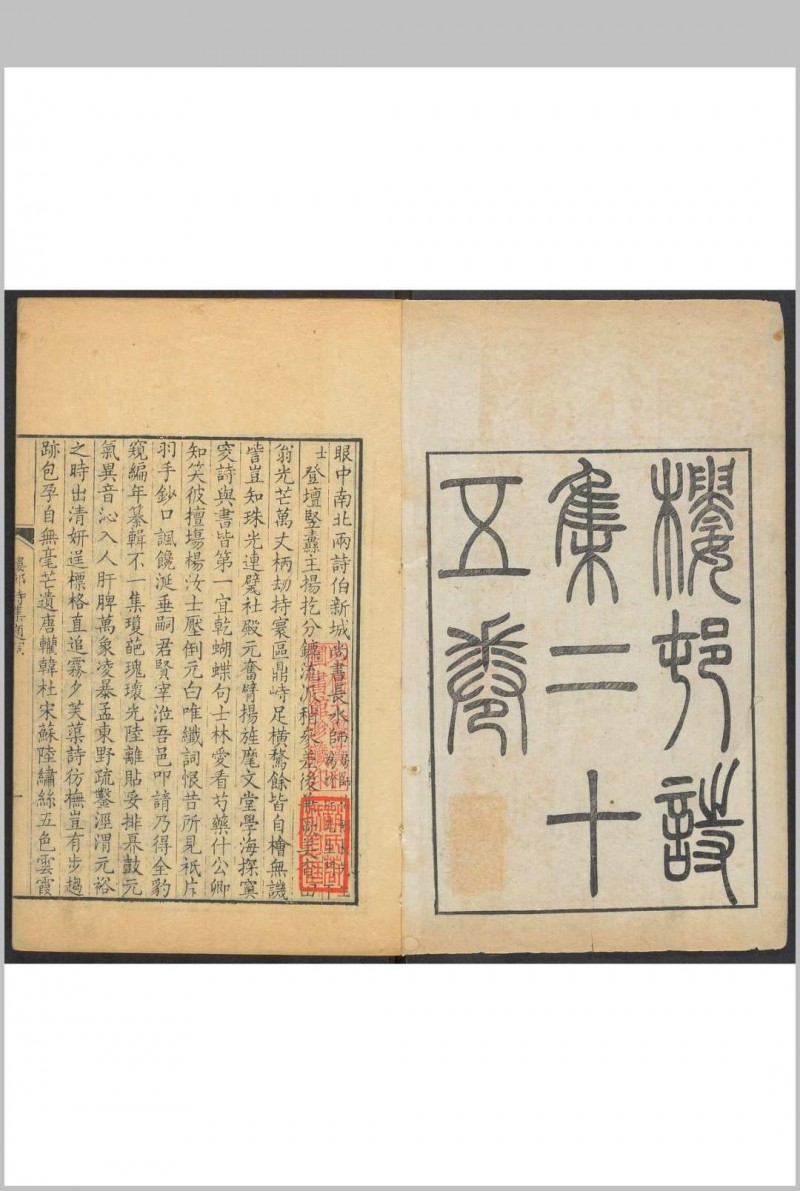 樓邨詩
集二十
五卷
眼中南北兩詩伯新城尚書長水師
士登壇堅纛主揚扢分鑣流派稍衆差後
翁光芒萬丈柄劫持寰區鼎峙足橫騖餘皆自檜無譏
訾豈知珠光連甓社殿元奮臂揚旌麾文堂學海探窴
窔詩與書皆第一宜乾蝴蝶句士林愛看芍藥什公卿
知笑彼擅塲楊汝士壓倒元白唯纖詞恨昔所見衹片
羽手鈔口諷饞涎垂嗣君賢宰涖吾邑叩請乃得全豹
窺編年纂輯不一集瓊葩瑰瓌光陸離貼妥排奡鼓元
氣異音沁入人肝脾萬象凌暴孟東野疏鑿涇渭元裕
之時出清妍逞標格直追霧夕芙蕖詩彷橅豈有步趨
跡包孕自無毫芒遺唐轥韓杜宋蘇陸繡絲五色雲霞